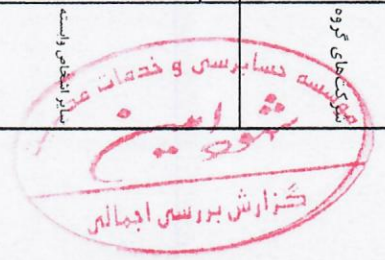 شرکت‌های گروه
سایر اشخاص وابسته
موسسه حسابرسی و خدمات
شهود امین
گزارش بررسی اجمالی